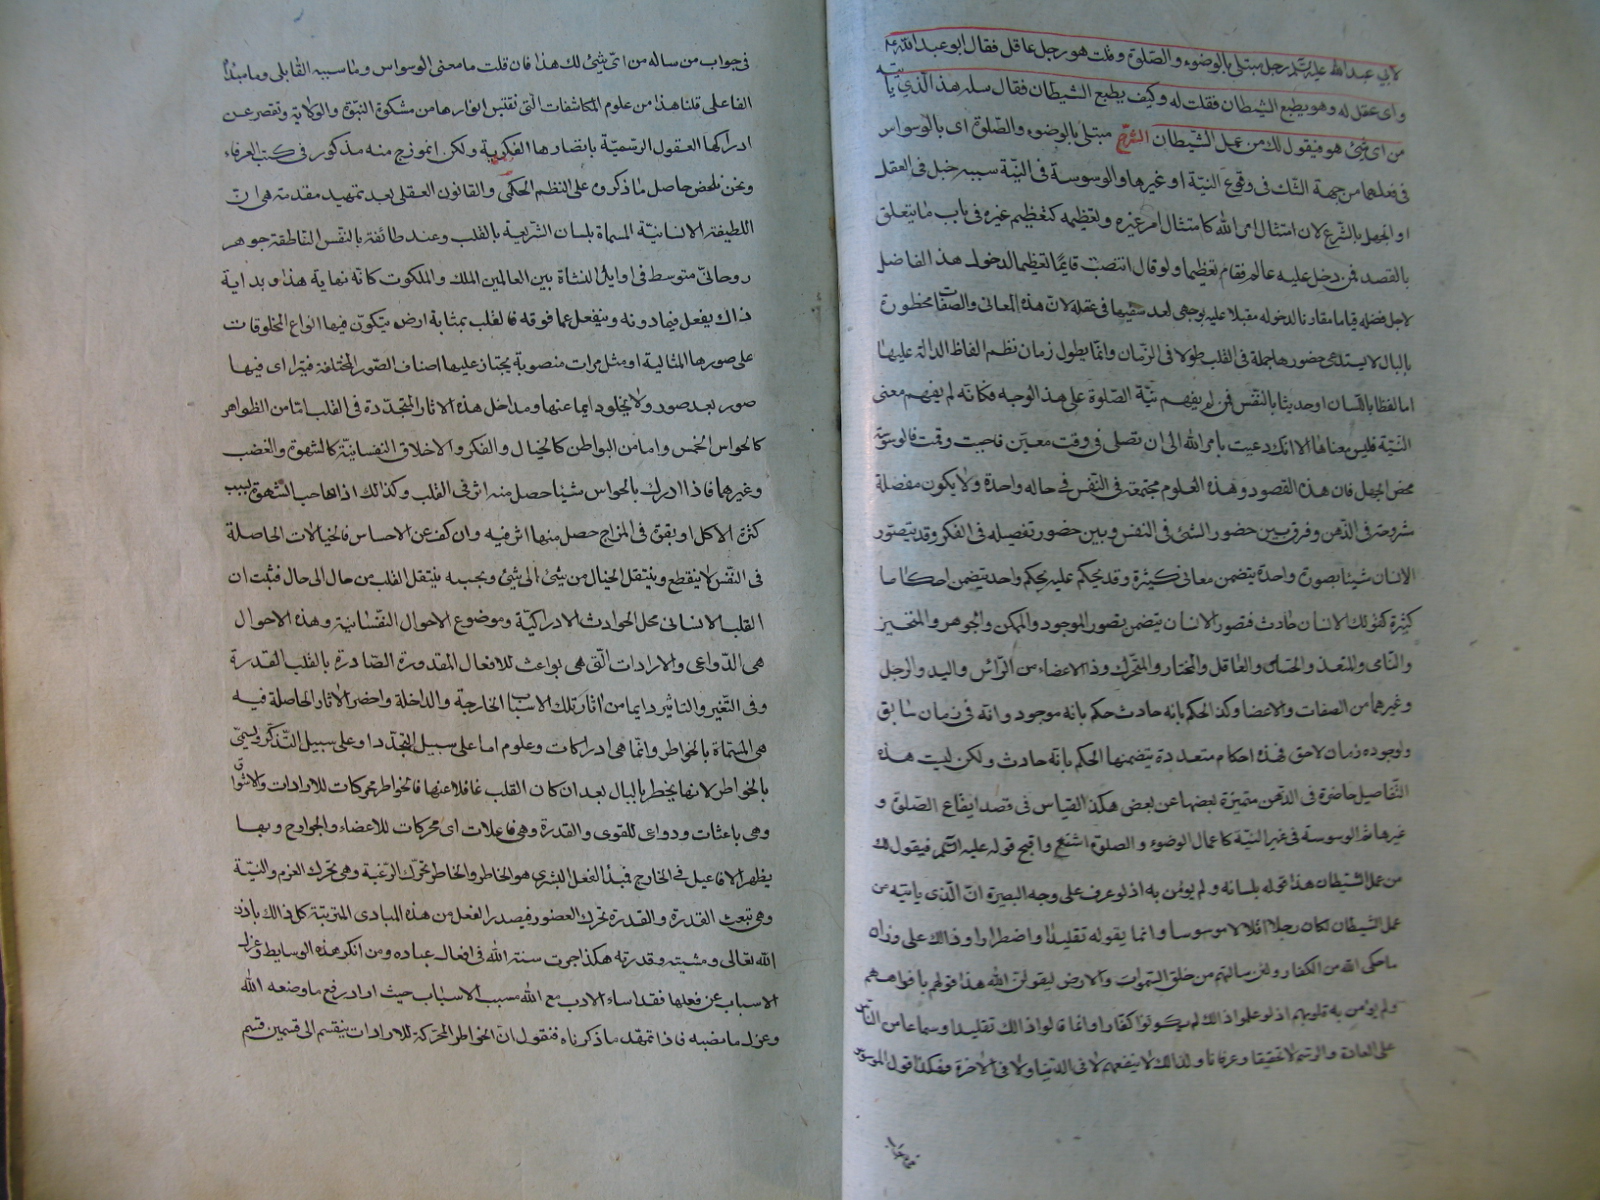 لابي عبد الله عليه السلم رجل مبتلى بالوضوء والصلوة وقلت هو رجل عاقل فقال ابو عبد الله ع
واى عقل له وهو يطيع الشيطان فقلت له وكيف يطيع الشيطان فقال سله هذا الذي ياتيه
من اى شئ هو فيقول لك من عمل الشيطان الشرح مبتلى بالوضوء والصلوة اى بالوسواس
فى فعلهما من جهة الشك فى وقوع النية او غيرها والوسوسة فى النية سببه خبل فى العقل
او الجهل بالشرع لان امتثال امر الله كامتثال امر غيره وتعظيمه كتعظيم غيره فى باب ما يتعلق
بالقصد فمن دخل عليه عالم فقام تعظيما ولو قال انتصبت قايما تعظيما لدخول هذا الفاضل
لاجل فضله قياما مقارنا لدخوله مقبلا عليه بوجهى لعد سفيها فى عقله لان هذه المعانى والصفات مخطورة
بالبال لا يستدعى حضورها جملة فى القلب طولا فى الزمان وانما يطول زمان نظم الفاظ الدالة عليها
اما لفظا باللسان او حديثا بالنفس فمن لم يفهم نية الصلوة على هذ الوجه فكانه لم يفهم معنى
النية فليس معناها الا انك دعيت بامر الله الى ان تصلى فى وقت معين فاجبت وقمت فالوسوسة
محض الجهل فان هذه القصود وهذه العلوم مجتمعة فى النفس فى حاله واحدة ولا يكون مفصلة
مشروحة فى الذهن وفرق بين حضور الشئ فى النفس وبين حضور تفصيله فى الفكر وقد يتصور
الانسان شيئا بصورة واحدة يتضمن معانى كثيرة وقد يحكم عليه بحكم واحد يتضمن احكاما
كثيرة كقولك الانسان حادث فتصور الانسان يتضمن تصور الموجود والممكن والجوهر والمتحيز
والنامى والمتغذ والحساس والعاقل والمختار والمتحرك وذا الاعضاء من الرائس واليد والرجل
وغيرهما من الصفات والاعضا وكذا الحكم بانه حادث حكم بانه موجود وانه فى زمان سابق
ولوجوده زمان لاحق فهذه احكام متعددة يتضمنها الحكم بانه حادث ولكن ليست هذه
التفاصيل حاضرة فى الذهن متميزة بعضها عن بعض هكذا القياس فى قصد ايقاع الصلوة و
غيرها ثم الوسوسة فى غير النية كاعمال الوضوء والصلوة اشنع واقبح قوله عليه السلم فيقول لك
من عمل الشيطان هذا قوله بلسانه ولم يؤمن به اذ لو عرف على وجه البصيرة ان الذى ياتيه من
عمل الشيطان لكان رجلا عاقلا لا موسوسا وانما يقوله تقليدا واضطرارا وذالك على وزان
ما حكى الله من الكفار ولئن سالتهم من خلق السموات والارض ليقولن الله هذا قولهم بافواههم
ولم يؤمن به قلوبهم اذ لو علموا ذالك لم يكونوا كفارا وانما قالوا ذالك تقليدا وسماعا من الناس
على العادة والرسم لا تحقيقا وعرفانا ولذالك لا ينفعهم لا فى الدنيا ولا فى الاخرة فهكذا قول الموسوس
فى جواب من ساله من اى شئ لك هذا فان قلت ما معنى الوسواس وما سببه القابلى وما مبدأ
الفاعلى قلنا هذا من علوم المكاشفات التى نقتبس انوارها من مشكوة النبوة والولاية وتقصر عن
ادراكها العقول الرسمية بانضارها الفكرية ولكن انموزج منه مذكور فى كتب العرفاء
ونحن نلخص حاصل ما ذكروه على النظم الحكمى والقانون العقلى بعد تمهيد مقدمة هى ان
اللطيفة الانسانية المسماة بلسان الشريعة بالقلب وعند طائفة بالنفس الناطقة جوهر
روحانى متوسط فى اوايل النشاة بين العالمين الملك والملكوت كانه نهاية هذا وبداية
ذاك يفعل فيما دونه وينفعل عما فوقه فالقلب بمثابة ارض يتكون فيها انواع المخلوقات
على صورها المثالية او مثل مرات منصوبة يجتاز عليها اصناف الصور المختلفة فيترااى فيها
صور بعد صور ولا يخلو دايما عنها ومداخل هذه الاثار المتجددة فى القلب اما من الظواهر
كالحواس الخمس واما من البواطن كالخيال والفكر والاخلاق النفسانية كالشهوة والغضب
وغيرهما فاذا ادرك بالحواس شيئا حصل منه اثر فى القلب وكذالك اذا هاجب الشهوة بسبب
كثرة الاكل او بقوة فى المزاج حصل منها اثر فيه وان كف عن الاحساس فالخيالات الحاصلة
فى النفس لا ينقطع وينتقل الخيال من شئ الى شئ وبحسبه ينتقل القلب من حال الى حال فثبت ان
القلب الانسانى محل الحوادث الادراكية وموضوع الاحوال النفسانية وهذه الاحوال
هى الدواعى والارادات التى هى بواعث للافعال المقدورة الصادرة بالقلب القدرة
وفى التغير والتاثير دايما من اثار تلك الاسباب الخارجة والداخلة واحضر الاثار الحاصلة فيه
هى المسماة بالخواطر وانما هى ادراكات وعلوم اما على سبيل التجدد او على سبيل التذكر ويسمى
بالخواطر لانها يخطر بالبال بعد ان كان القلب غافلا عنها فالخواطر محركات للارادات والاشواق
وهى باعثات ودواعى للقوى والقدرة وهى فاعلات اى محركات للاعضاء والجوارح وبها
يظهر الافاعيل فى الخارج فمبدأ الفعل البشرى هو الخاطر والخاطر تحرك الرغبة وهى تحرك العزم والنية
وهى تبعث القدرة والقدرة تحرك العضو فيصدر الفعل من هذه المبادى المترتبة كل ذالك باذن
الله تعالى ومشيته وقدرته هكذا جرت سنة الله فى افعال عباده ومن انكر هذه الوسايط وعزل
الاسباب عن فعلها فقد اساء الادب مع الله مسبب الاسباب حيث اراد رفع ما وضعه الله
وعزل ما نصبه فاذا تمهد ما ذكرناه فنقول ان الخواطر المحركة للارادات ينقسم الى قسمين قسم